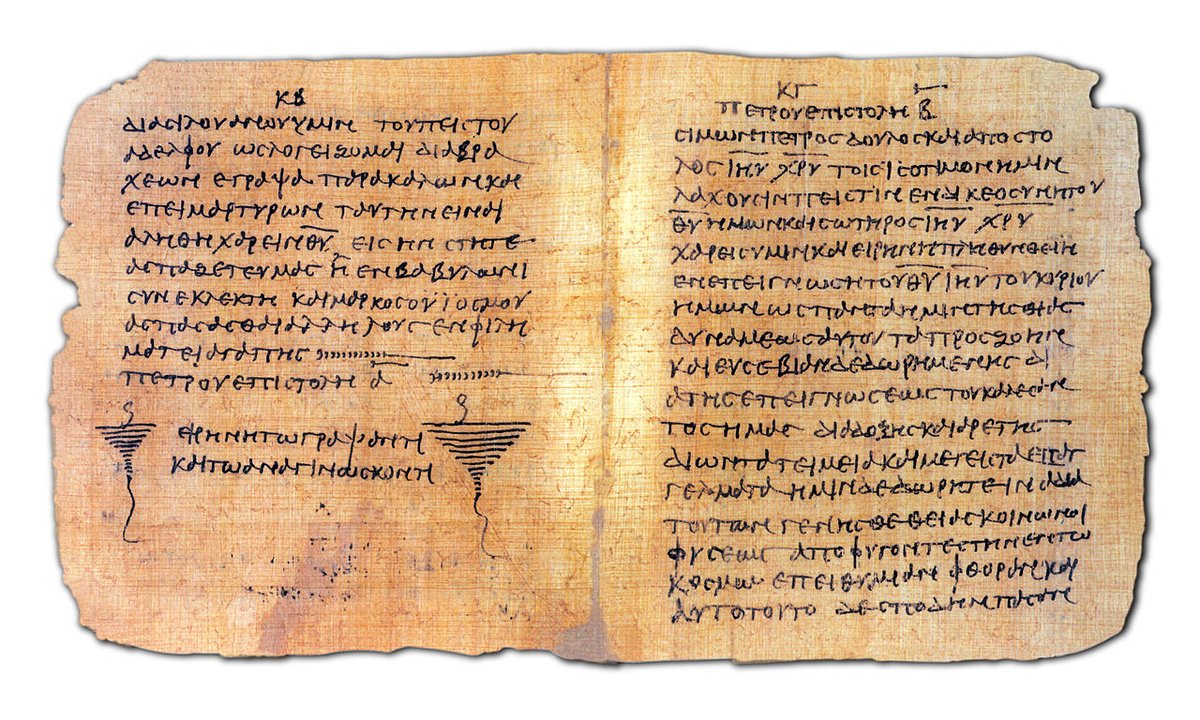 ΚΒ
ΔΙΑ ΣΙΛΟΥΑΝΩΥ ΥΜΙΝ ΤΟΥ ΠΕΙΣΤΟΥ
ΑΔΕΛΦΟΥ ΩΣ ΛΟΓΕΙΖΟΜΑΙ ΔΙΑ ΒΡΑ
ΧΕΩΝ ΕΓΡΑΨΑ ΠΑΡΑΚΑΛΩΝ ΚΑΙ
ΕΠΕΙΜΑΡΤΥΡΩΝ ΤΑΥΤΗΝ ΕΙΝΑΙ
ΑΛΗΘΗ ΧΑΡΕΙΝ ΘΥ ΕΙΣ ΗΝ ΣΤΗΤΕ
ΑΣΠΑΖΕΤΕ ΥΜΑΣ Η ΕΝ ΒΑΒΥΛΩΝΙ
ΣΥΝΕΚΛΕΚΤΗ ΚΑΙ ΜΑΡΚΟΣ Ο ΥΙΟΣ ΜΟΥ
ΑΣΠΑΣΑΣΘΑΙ ΑΛΛΗΛΟΥΣ ΕΝ ΦΙΛΗ
ΜΑΤΕΙ ΑΓΑΠΗΣ
ΠΕΤΡΟΥ ΕΠΙΣΤΟΛΗ Α
ΕΙΡΗΝΗ ΤΩ ΓΡΑΨΑΝΤΙ
ΚΑΙ ΤΩ ΑΝΑΓΙΝΩΣΚΟΝΤΙ
ΚΓ
ΠΕΤΡΟΥ ΕΠΙΣΤΟΛΗ Β
ΣΙΜΩΝ ΠΕΤΡΟΣ ΔΟΥΛΟΣ ΚΑΙ ΑΠΟΣΤΟ
ΛΟΣ ΙΗΥ ΧΡΥ ΤΟΙΣ ΙΣΟΤΙΜΟΝ ΗΜΙΝ
ΛΑΧΟΥΣΙΝ ΠΕΙΣΤΙΝ ΕΝ ΔΙΚΕΟΣΥΝΗ ΤΟΥ
ΘΥ ΗΜΩΝ ΚΑΙ ΣΩΤΗΡΟΣ ΙΗΥ ΧΡΥ
ΧΑΡΕΙΣ ΥΜΙΝ ΚΑΙ ΕΙΡΗΝΗ ΠΛΗΘΥΝΘΕΙΗ
ΕΝ ΕΠΕΙΓΝΩΣΗ ΤΟΥ ΘΥ ΙΗΥ ΤΟΥ ΚΥΡΙΟΥ
ΗΜΩΝ ΩΣ ΠΑΝΤΑ ΗΜΙΝ ΤΗΣ ΘΙΑΣ
ΔΥΝΑΜΕΩΣ ΑΥΤΟΥ ΤΑ ΠΡΟΣ ΖΩΗΝ
ΚΑΙ ΕΥΣΕΒΙΑΝ ΔΕΔΩΡΗΜΕΝΗΣ ΔΙ
Α ΤΗΣ ΕΠΕΙΓΝΩΣΕΩΣ ΤΟΥ ΚΑΛΕΣΑΝ
ΤΟΣ ΗΜΑΣ ΔΙΑ ΔΟΞΗΣ ΚΑΙ ΑΡΕΤΗΣ
ΔΙ ΩΝ ΤΑ ΤΕΙΜΕΙΑ ΚΑΙ ΜΕΓΕΙΣΤΑ ΕΠΑΓ
ΓΕΛΜΑΤΑ ΗΜΙΝ ΔΕΔΩΡΗΤΕ ΙΝΑ ΔΙΑ
ΤΟΥΤΩΝ ΓΕΝΗΣΘΕ ΘΕΙΑΣ ΚΟΙΝΩΝΟΙ
ΦΥΣΕΩΣ ΑΠΟΦΥΓΟΝΤΕΣ ΤΗΝ ΕΝ ΤΩ
ΚΟΣΜΩ ΕΠΕΙΘΥΜΙΑΝ ΦΘΟΡΑΝ ΚΑΙ
ΑΥΤΟ ΤΟΥΤΟ ΔΕ ΣΠΟΔΗΝ ΠΑΣΑΝ